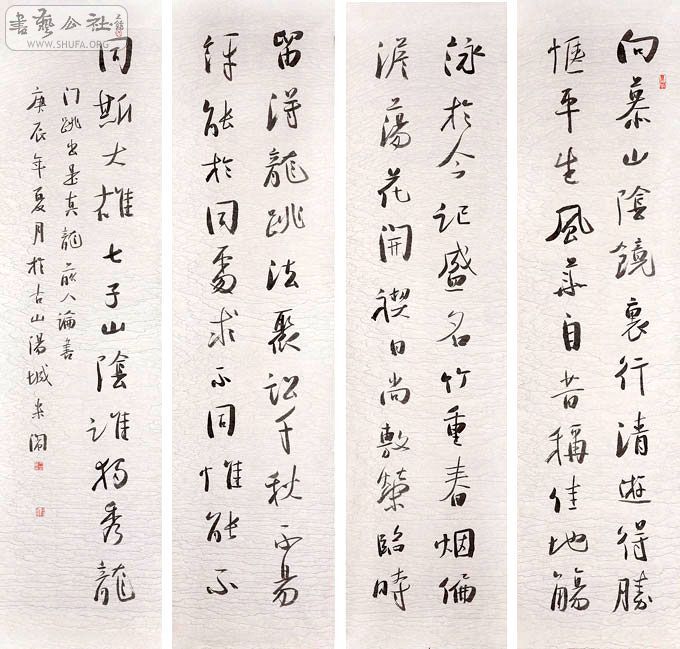 書藝公社
WWW.SHUFA.ORG
向慕山陰鏡裏行清遊得勝
愜平生風華自昔稱佳地觴
詠於今記盛名竹重春烟偏
淡蕩花開禊日尚敷榮臨時
留得龍跳法聚訟千秋不易
評能於同處求不同惟能不
同斯大雄七子山陰誰獨秀龍
门跳出是真龍 前人論書
庚辰年夏月於古山陽城